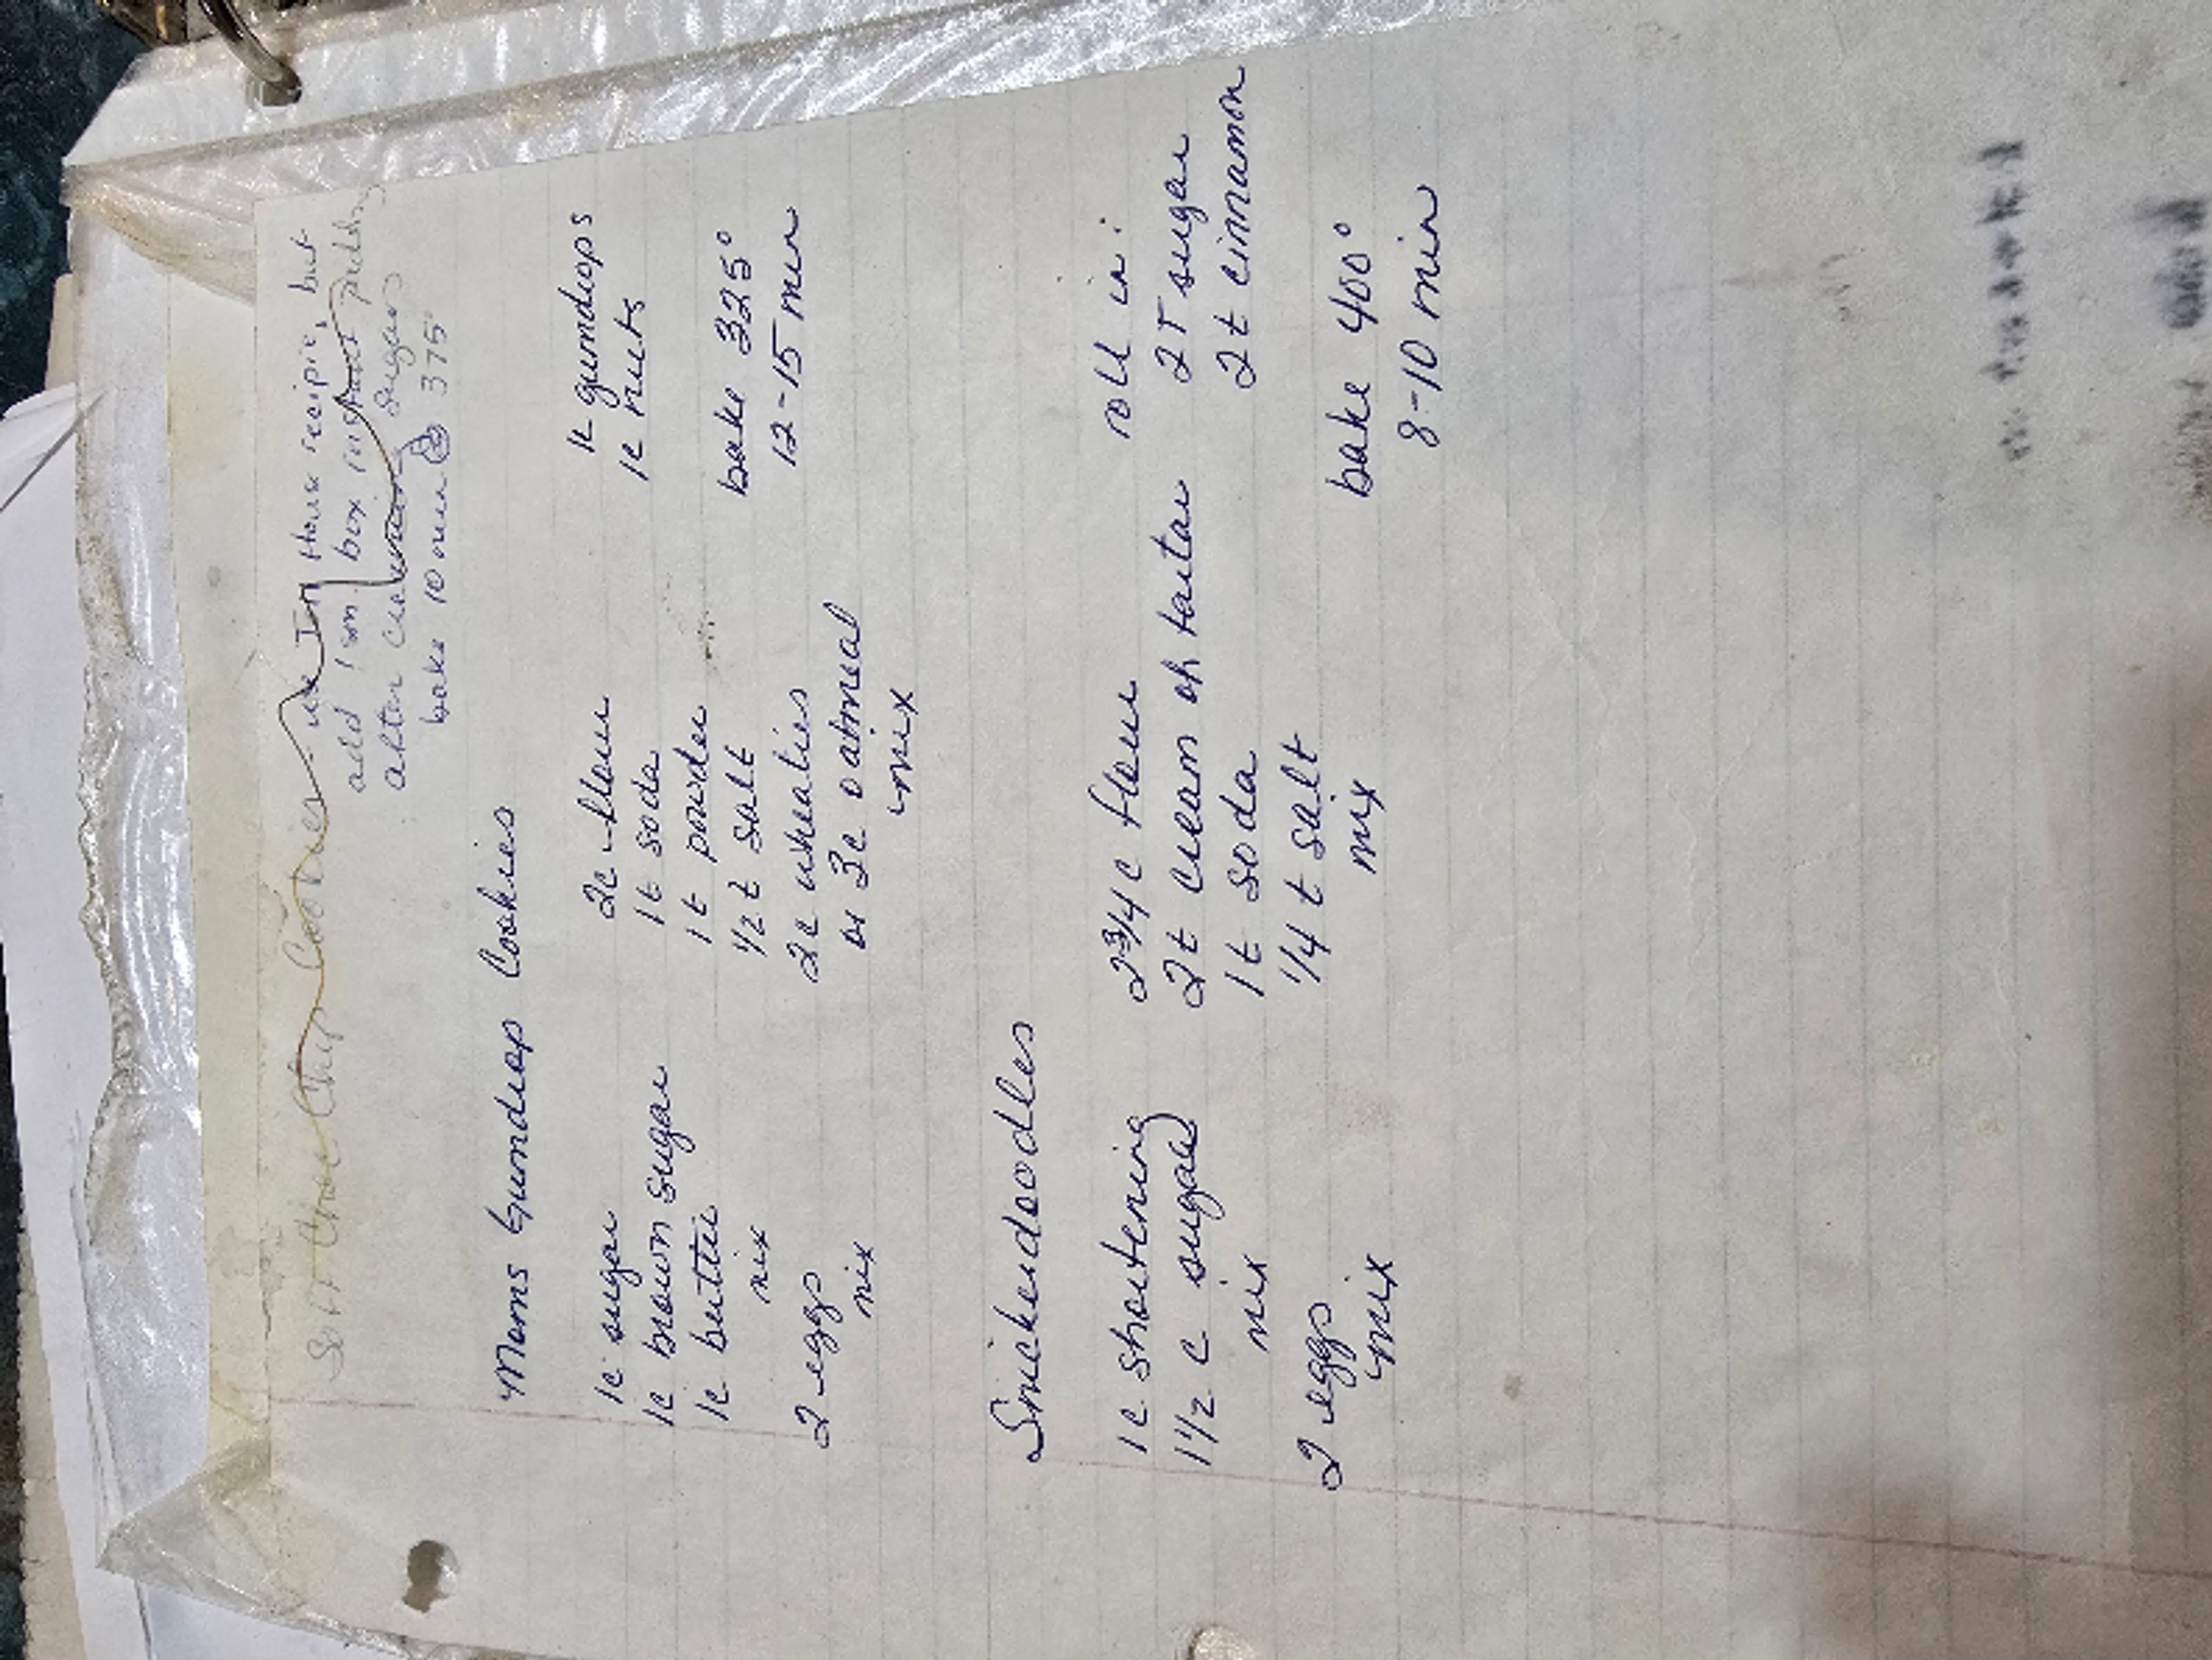 Soft Choc Chip Cookies - use In House recipie, but
add 1 sm. box instant pudding
after creaming sugars
bake 10 min @ 375°
Moms Gumdrop Cookies
1c sugar
1c brown sugar
1c butter
mix
2 eggs
mix
2c flour
1t soda
1t powder
1/2 t salt
2c wheaties
or 3c oatmeal
mix
1c gumdrops
1c nuts
bake 325°
12-15 min
Snickerdoodles
1c shortening
1 1/2 c sugar
mix
2 eggs
mix
2 3/4 c flour
2t cream of tartar
1t soda
1/4 t salt
mix
roll in:
2T sugar
2t cinnamon
bake 400°
8-10 min